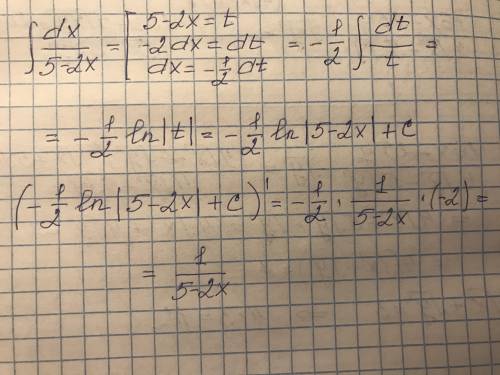 ∫ dx/(5-2x) = [ 5-2x=t
-2dx=dt
dx=-1/2 dt
= -1/2 ∫ dt/t =
= -1/2 ln|t| = -1/2 ln|5-2x|+C
(-1/2 ln|5-2x|+C)' = -1/2 · 1/(5-2x) · (-2) =
= 1/(5-2x)